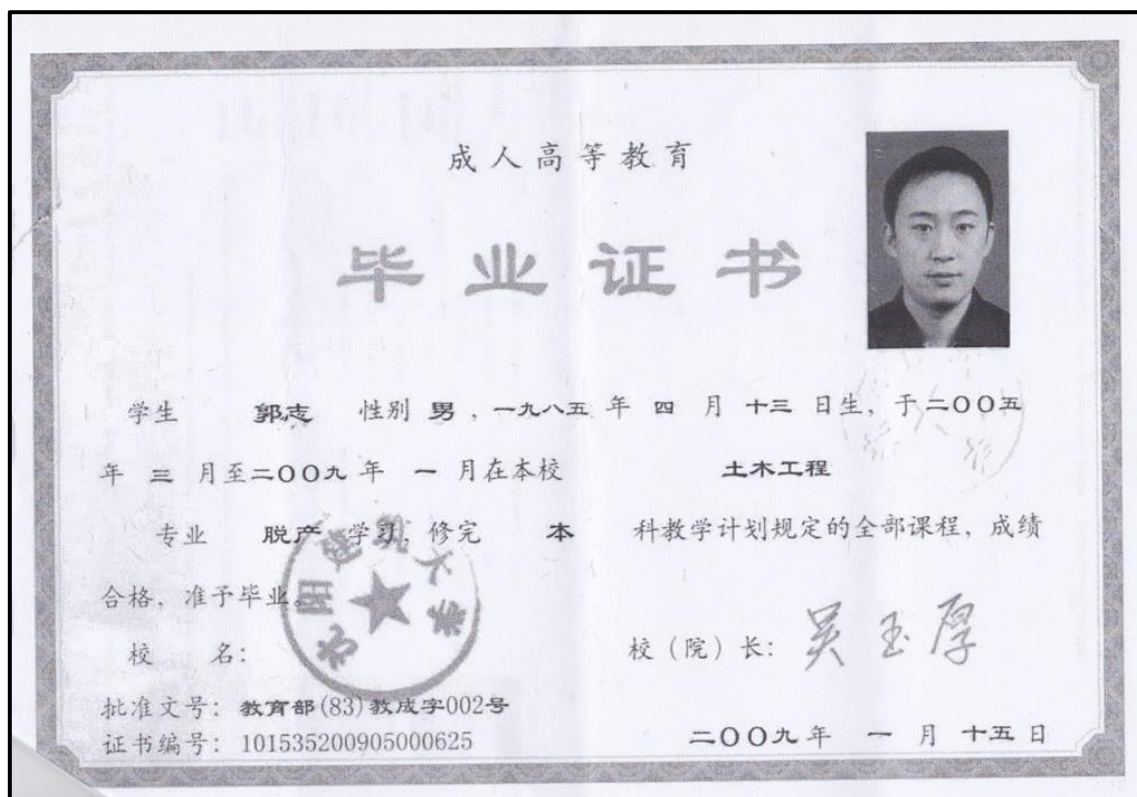 成人高等教育
毕业证书
学生 郭志 性别 男，一九八五 年 四 月 十三 日生，于二〇〇五
年 三 月至二〇〇九 年 一 月在本校 土木工程
专业 脱产 学习，修完 本 科教学计划规定的全部课程，成绩
合格，准予毕业。
沈阳建筑大学
校 名： 校（院）长：吴玉厚
批准文号：教育部(83)教成字002号
证书编号：101535200905000625 二〇〇九年 一 月 十五 日